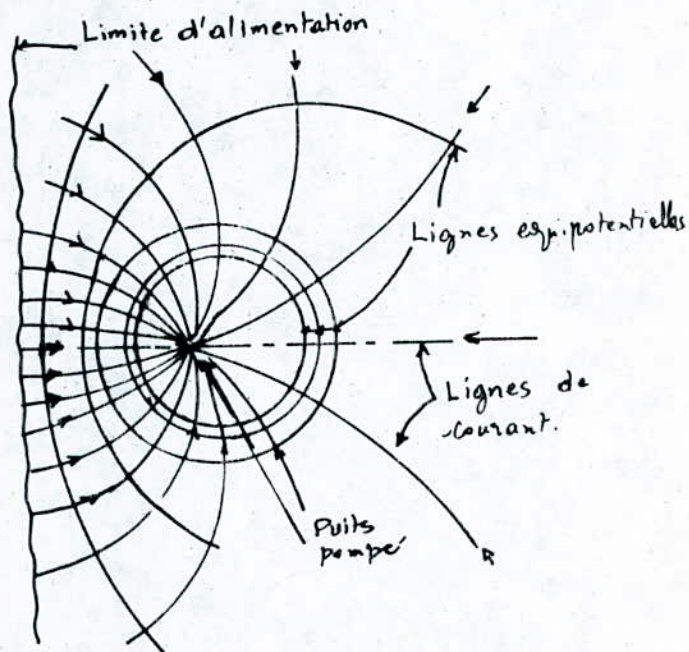 Limite d'alimentation
Lignes equipotentielles
Lignes de
courant.
Puits
pompé